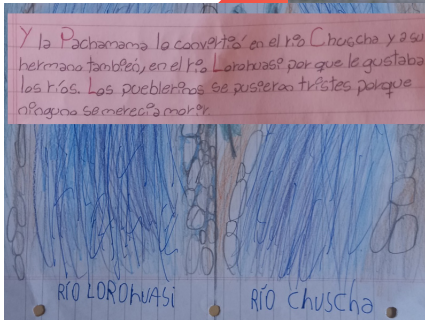 Y la Pachamama lo convertió en el río Chuscha y a su
hermano también, en el río Lorohuasi por que le gustaba
los ríos. Los pueblerinos se pusieron tristes porque
ninguno se merecía morir.
RÍO LOROHUASi
RÍO Chuscha